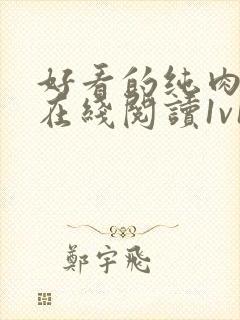 好看的纯肉
在綫閱讀1v1
鄭宇飛